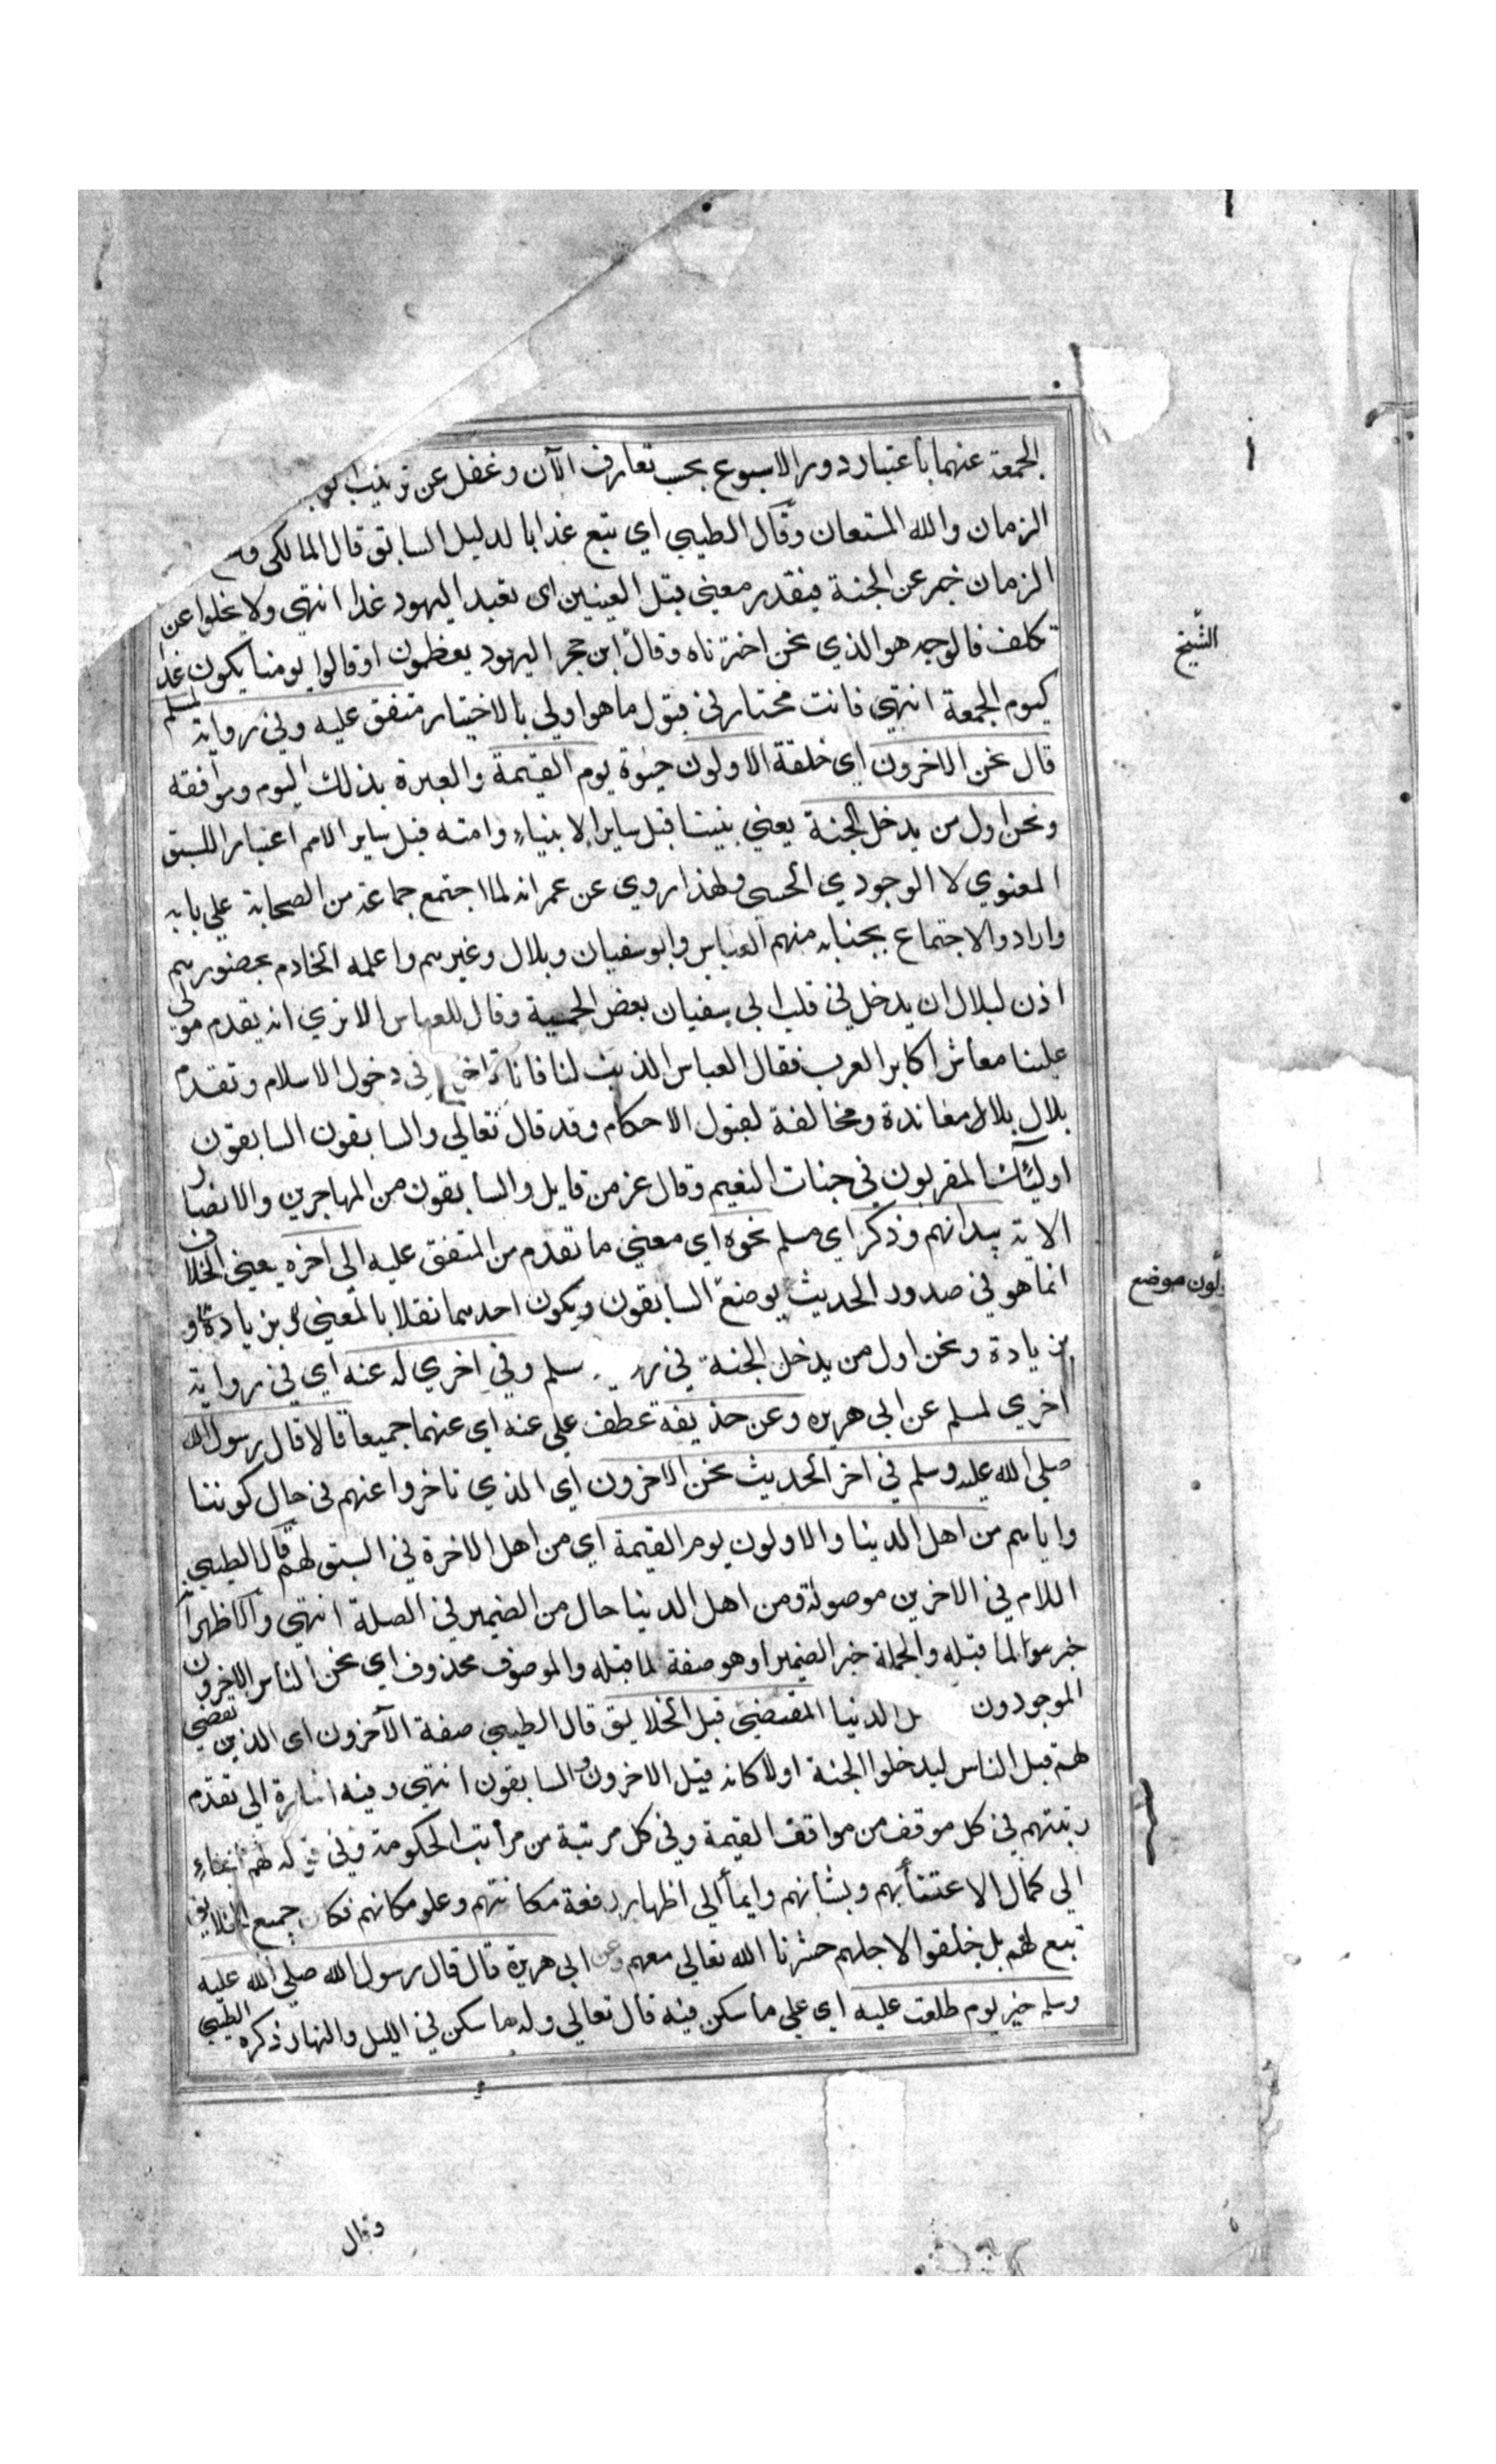 الجمعة عنهما باعتبار دور الاسبوع بحسب تعارف الآن وغفل عن ترتيب
الزمان والله المستعان وقال الطيبي اي تبع غدا بالدليل السابق قال المالكي
الزمان خبر عن الجنة فيقدر معني قبل العينين اى تعبد اليهود غدا انتهي ولا يخلوا عن
تكلف فالوجه هو الذي نحن اخترناه وقال ابن حجر اليهود يعظمون او قالوا يومنا يكون غد
كيوم الجمعة انتهي فانت مختار في قبول ما هو اولي بالاختيار متفق عليه وفي رواية لمسلم
قال نحن الاخرون اى خلقة الاولون حيوة يوم القيمة والعبرة بذلك اليوم ومواقفه
ونحن اول من يدخل الجنة يعني نبينا قبل ساير الانبياء وامته قبل ساير الامم اعتبارا للسبق
المعنوي لا الوجودي الحسي ولهذا روي عن عمر انه لما اجتمع جماعة من الصحابة علي بابه
وارادوا الاجتماع بجنابه منهم العباس وابو سفيان وبلال وغيرهم واعلمه الخادم بحضورهم
اذن لبلال ان يدخل في قلب ابي سفيان بعض الحمية وقال للعباس الا تري انه يقدم موالي
علينا معاشر اكابر العرب فقال العباس الذنب لنا فانا تاخرنا في دخول الاسلام وتقدم
بلال بلا معاندة ومخالفة لقبول الاحكام وقد قال تعالي والسابقون السابقون
اولئك المقربون في جنات النعيم وقال عز من قايل والسابقون من المهاجرين والانصار
الاية بيد انهم وذكر اي مسلم نحوه اي معني ما تقدم من المتفق عليه الى اخره يعني الخلاف
انما هو في صدور الحديث بوضع السابقون ويكون احدهما نقلا بالمعني وبزيادة او
بزيادة ونحن اول من يدخل الجنة في سلم وفي اخري له عنه اي في رواية
اخري لمسلم عن ابي هريره وعن حذيفة عطف علي عنه اي عنهما جميعا قالا قال رسول الله
صلي الله عليه وسلم في اخر الحديث نحن الاخرون اي الذي تاخروا عنهم فى حال كوننا
واياهم من اهل الدينا والاولون يوم القيمة اي من اهل الاخرة في السبق لهم قال الطيبي
اللام في الاخرين موصولة ومن اهل الدينا حال من الضمير في الصلة انتهي والاظهر انه
خبر سوا لما قبله والجملة خبر الضمير او هو صفة لما قبله والموصوف محذوف اي نحن الناس الاخرون
الموجودون ل الدينا المقضي قبل الخلايق قال الطيبي صفة الآخرون اى الذين يقضي
لهم قبل الناس ليدخلوا الجنة اولا كانه قيل الاخرون السابقون انتهي وفيه اشارة الي تقدم
رتبتهم في كل موقف من مواقف القيمة وفي كل مرتبة من مراتب الحكومة وفي قوله لهم
الي كمال الاعتناء بهم وبشانهم وايماء الي اظهار رفعة مكانتهم وعلو مكانهم فكان جميع الخلايق
تبع لهم بل خلقوا لاجلهم حشرنا الله تعالي معهم وعن ابي هريرة قال قال رسول الله صلي الله عليه
وسلم خير يوم طلعت عليه اي علي ما سكن فيه قال تعالي وله ما سكن في الليل والنهار ذكره الطيبي
وقال
الشيخ
لون موضع